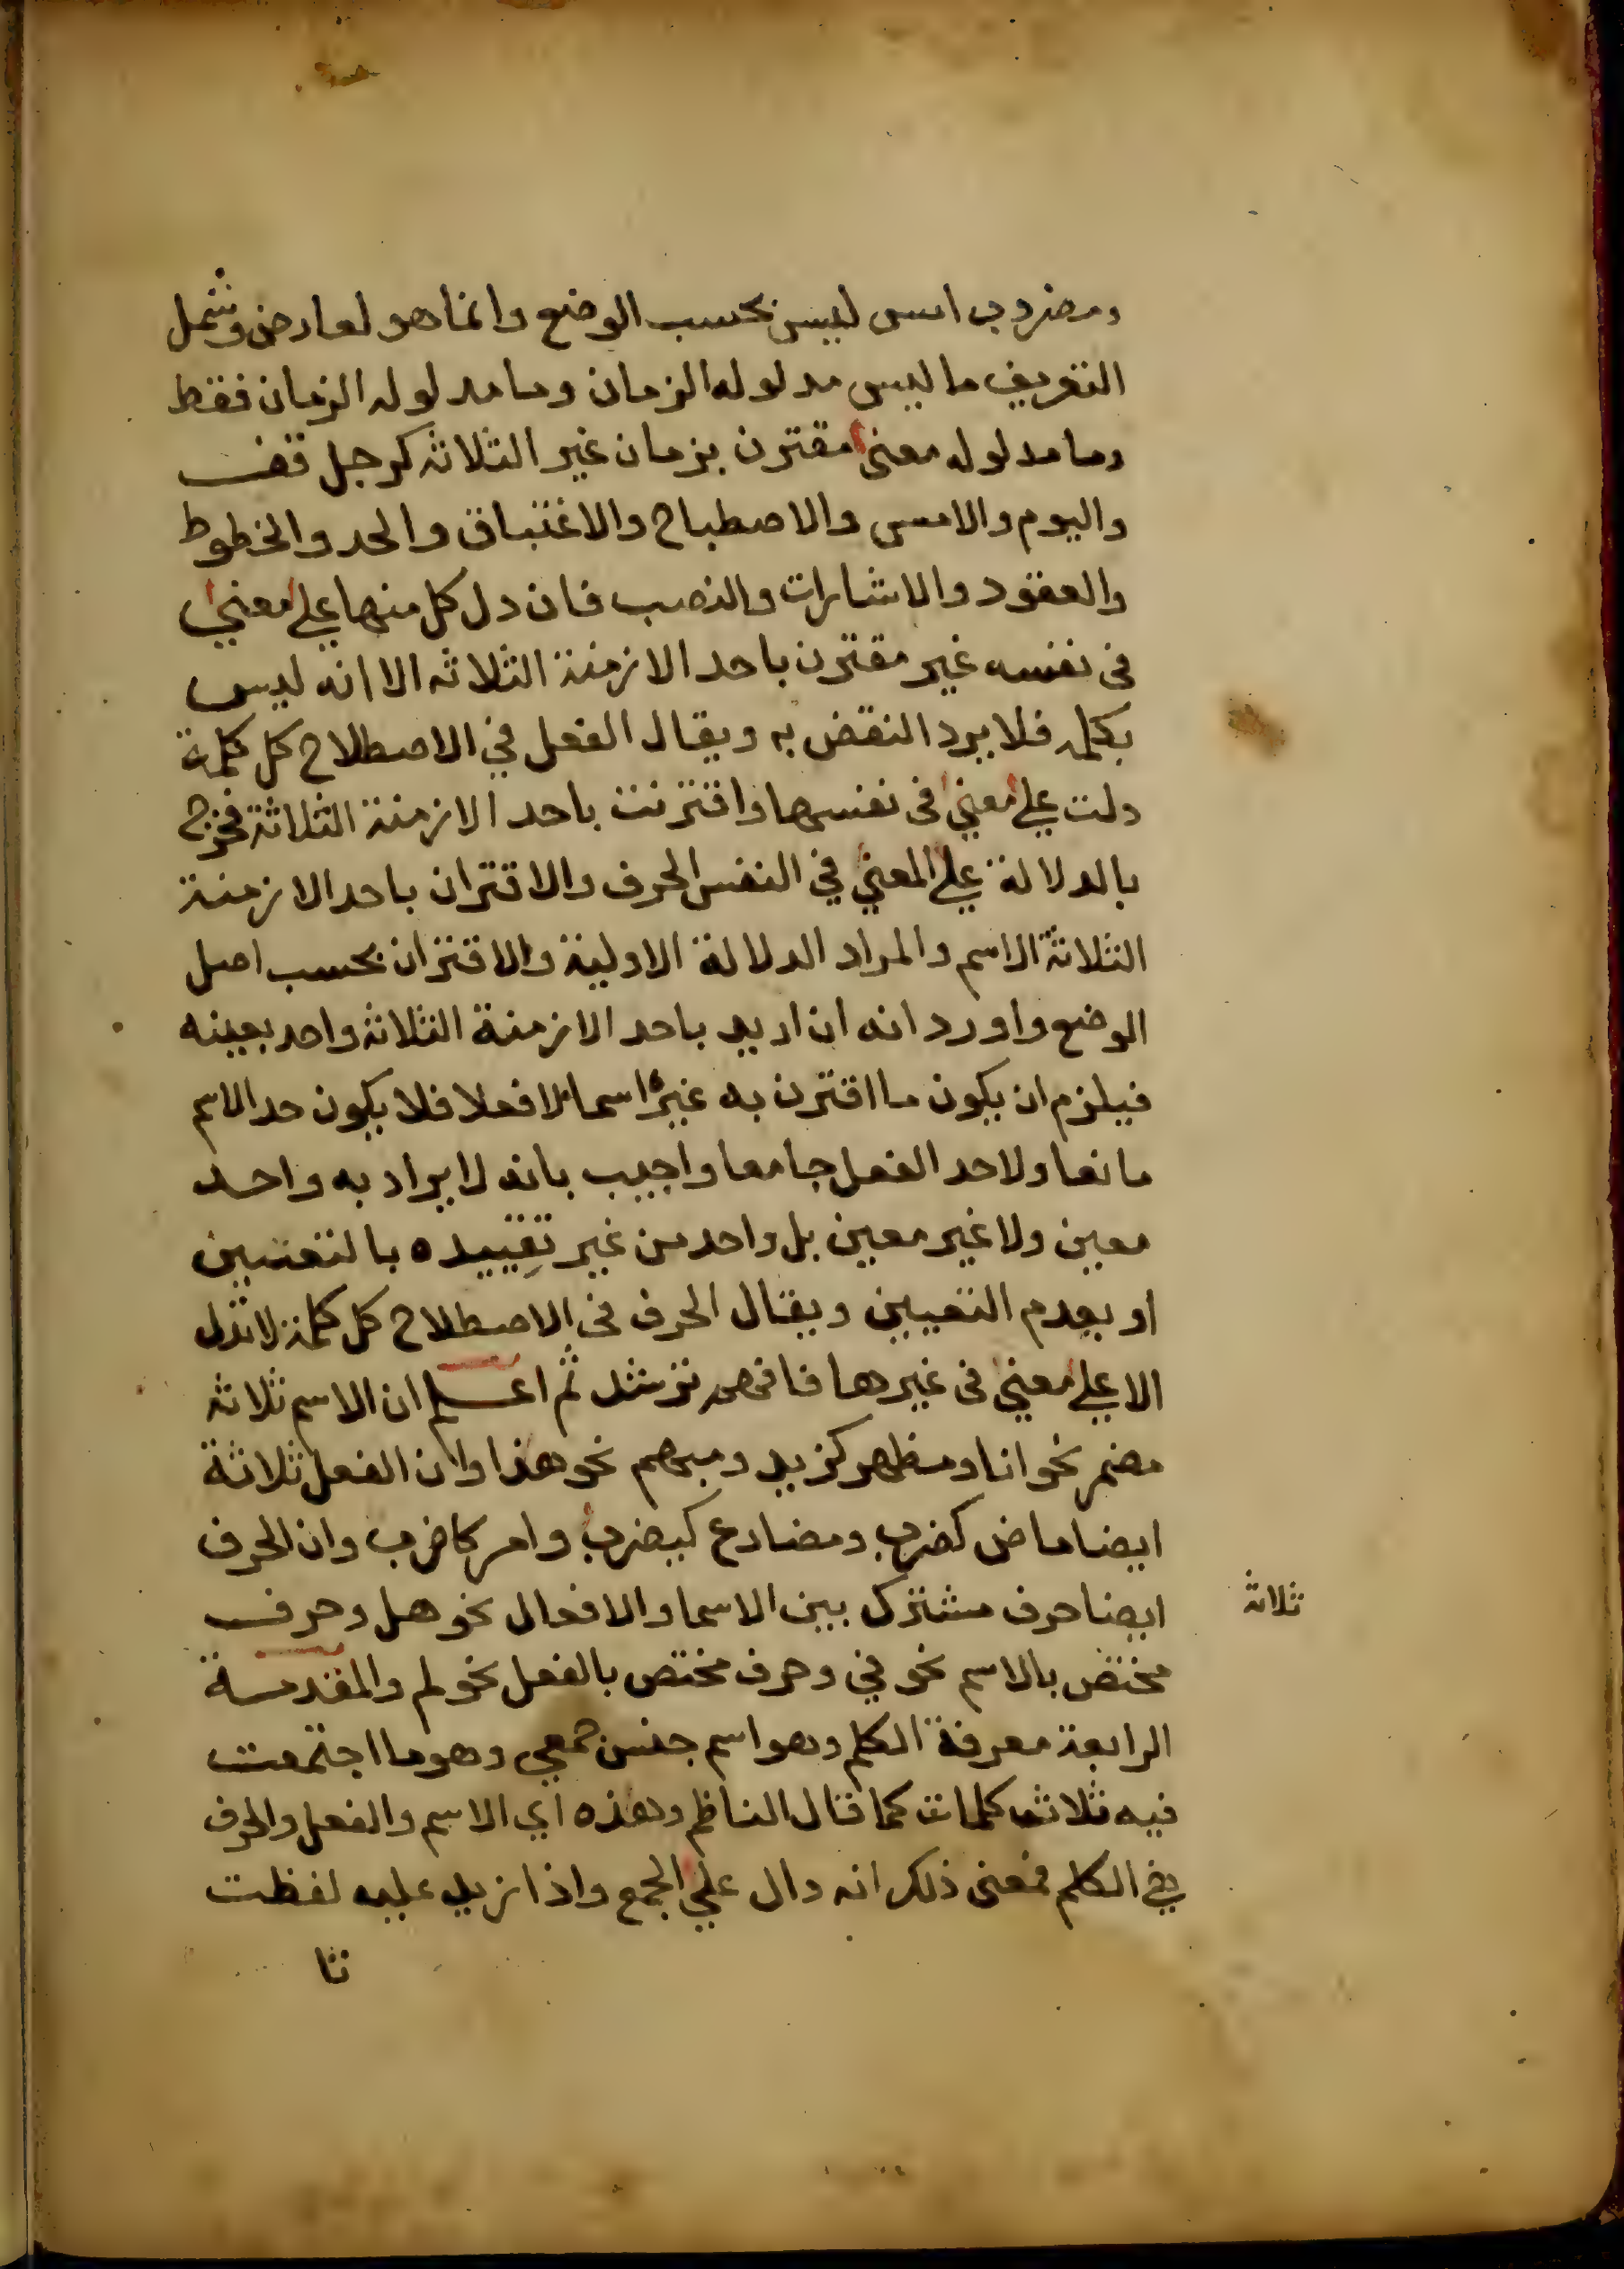 ومضروب امس ليس بحسب الوضع وانما هو لعارض وشمل
التعريف ما ليس مدلوله الزمان وما مدلوله الزمان فقط
وما مدلوله معنى مقترن بزمان غير الثلاثة كرجل قف
واليوم والامس والاصطباح والاغتباق والحد والخطوط
والعقود والاشارات والنصب فان دل كل منها على معنى
فى نفسه غير مقترن باحد الازمنة الثلاثه الا انه ليس
بكلمه فلا يرد النقض به ويقال الفعل في الاصطلاح كل كلمة
دلت على معنى فى نفسها واقترنت باحد الازمنة الثلاثة فخرج
بالدلالة على المعنى في النفس الحرف والاقتران باحد الازمنة
الثلاثة الاسم والمراد الدلالة الاولية والاقتران بحسب اصل
الوضع واورد انه ان اريد باحد الازمنة الثلاثة واحد بعينه
فيلزم ان يكون ما اقترن به غيره اسما لا فعلا فلا يكون حد الاسم
مانعا ولا حد الفعل جامعا واجيب بانه لا يراد به واحد
معين ولا غير معين بل واحد من غير تقييده بالتعيين
او بعدم التعيين ويقال الحرف فى الاصطلاح كل كلمة لا تدل
الا على معنى فى غيرها فافهم ترشد ثم اعلم ان الاسم ثلاثة
مضمر نحو انا ومظهر كزيد ومبهم نحو هذا وان الفعل ثلاثة
ايضا ماض كضرب ومضارع كيضرب وامر كاضرب وان الحرف
ثلاثة
ايضا حرف مشترك بين الاسما والافعال نحو هل وحرف
مختص بالاسم نحو في وحرف مختص بالفعل نحو لم والمقدمة
الرابعة معرفة الكلم وهو اسم جنس جمعي وهو ما اجتمعت
فيه ثلاث كلمات كما قال الناظم وهذه اي الاسم والفعل والحرف
هي الكلم فمعنى ذلك انه دال على الجمع واذا زيد عليه لفظت
تا